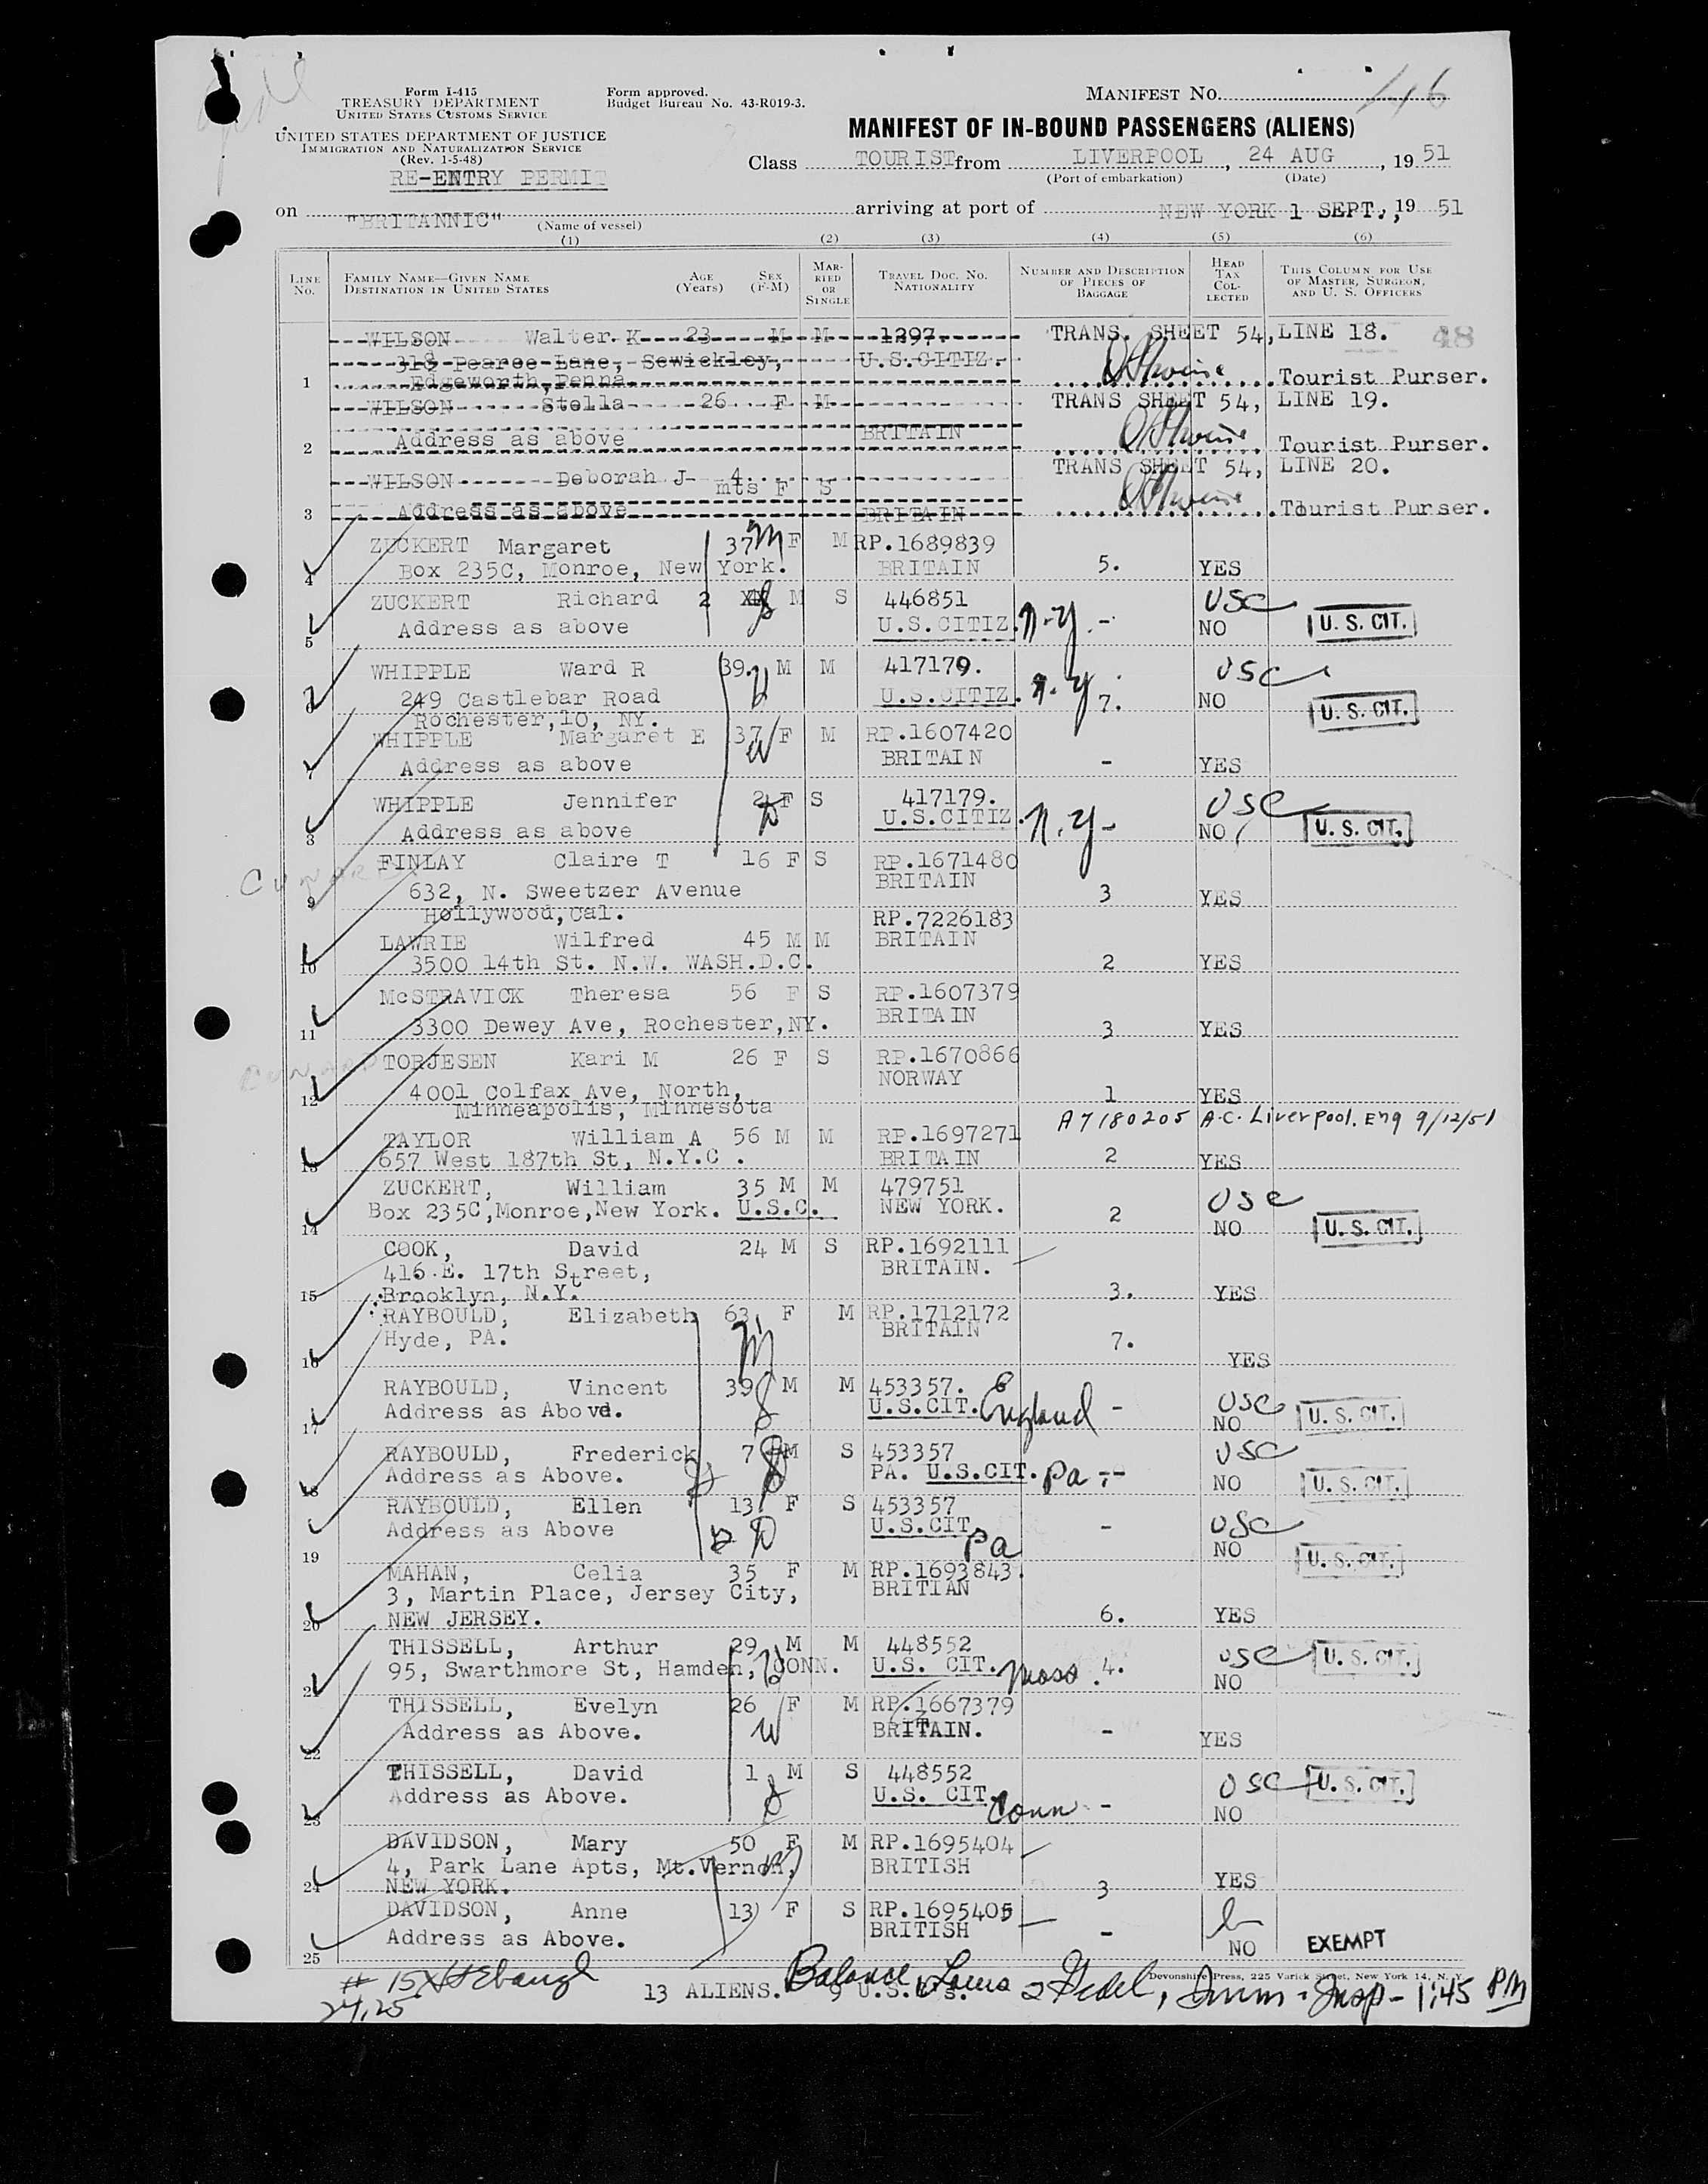 Form I-415
TREASURY DEPARTMENT
UNITED STATES CUSTOMS SERVICE
UNITED STATES DEPARTMENT OF JUSTICE
IMMIGRATION AND NATURALIZATION SERVICE
(Rev. 1-5-48)
RE-ENTRY PERMIT
Form approved.
Budget Bureau No. 43-R019-3.
MANIFEST No.
MANIFEST OF IN-BOUND PASSENGERS (ALIENS)
Class TOURIST from LIVERPOOL, 24 AUG, 19 51
(Port of embarkation) (Date)
on "BRITANNIC" arriving at port of NEW YORK 1 SEPT., 19 51
(Name of vessel)
(1) (2) (3) (4) (5) (6)
LINE No. FAMILY NAME—GIVEN NAME DESTINATION IN UNITED STATES AGE (Years) SEX (F-M) MARRIED OR SINGLE TRAVEL DOC. NO. NATIONALITY NUMBER AND DESCRIPTION OF PIECES OF BAGGAGE HEAD TAX COLLECTED THIS COLUMN FOR USE OF MASTER, SURGEON, AND U. S. OFFICERS
WILSON Walter K 23 M M 1297. TRANS. SHEET 54, LINE 18. 48
318 Pearce Lane, Sewickley, U.S.CITIZ.
1 Edgeworth, Penna. Tourist Purser.
WILSON Stella 26 F M TRANS SHEET 54, LINE 19.
2 Address as above BRITAIN Tourist Purser.
WILSON Deborah J 4 mts F S TRANS SHEET 54, LINE 20.
3 Address as above BRITAIN Tourist Purser.
ZUCKERT Margaret 37 F M RP.1689839
4 Box 235C, Monroe, New York. BRITAIN 5. YES
ZUCKERT Richard 2 M S 446851 USC
5 Address as above U.S.CITIZ. N.Y. - NO U. S. CIT.
WHIPPLE Ward R 39. M M 417179. USC
6 249 Castlebar Road U.S.CITIZ. N.Y. 7. NO U. S. CIT.
Rochester,10, NY.
WHIPPLE Margaret E 37 F M RP.1607420
7 Address as above BRITAIN - YES
WHIPPLE Jennifer 2 F S 417179. USC
8 Address as above U.S.CITIZ. N.Y - NO U. S. CIT.
FINLAY Claire T 16 F S RP.1671480
CUNARD BRITAIN
9 632, N. Sweetzer Avenue 3 YES
Hollywood, Cal. RP.7226183
LAWRIE Wilfred 45 M M BRITAIN
10 3500 14th St. N.W. WASH.D.C. 2 YES
McSTRAVICK Theresa 56 F S RP.1607379
11 3300 Dewey Ave, Rochester, NY. BRITAIN 3 YES
CUNARD TORJESEN Kari M 26 F S RP.1670866
NORWAY
12 4001 Colfax Ave, North, 1 YES
Minneapolis, Minnesota A7180205 A.C. Liverpool. Eng 9/12/51
TAYLOR William A 56 M M RP.1697271
13 657 West 187th St, N.Y.C . BRITAIN 2 YES
ZUCKERT, William 35 M M 479751 USC
14 Box 235C,Monroe,New York. U.S.C. NEW YORK. 2 NO U. S. CIT.
COOK, David 24 M S RP.1692111
416 E. 17th Street, BRITAIN.
15 Brooklyn, N.Y. 3. YES
RAYBOULD, Elizabeth 63 F M RP.1712172
16 Hyde, PA. BRITAIN 7. YES
RAYBOULD, Vincent 39 M M 453357.
17 Address as Above. U.S.CIT. England - USC NO U. S. CIT.
RAYBOULD, Frederick 7 M S 453357 USC
18 Address as Above. PA. U.S.CIT. Pa -- NO U. S. CIT.
RAYBOULD, Ellen 13 F S 453357
Address as Above U.S.CIT. Pa - USC
19 NO U. S. CIT.
MAHAN, Celia 35 F M RP.1693843.
3, Martin Place, Jersey City, BRITIAN
20 NEW JERSEY. 6. YES
THISSELL, Arthur 29 M M 448552
21 95, Swarthmore St, Hamden, CONN. U.S. CIT. Mass. 4. USC NO U. S. CIT.
THISSELL, Evelyn 26 F M RP.1667379
22 Address as Above. BRITAIN. - YES
THISSELL, David 1 M S 448552
23 Address as Above. U.S. CIT. Conn - USC NO U. S. CIT.
DAVIDSON, Mary 50 F M RP.1695404
4, Park Lane Apts, Mt.Vernon, BRITISH
24 NEW YORK. 3 YES
DAVIDSON, Anne 13 F S RP.1695405
25 Address as Above. BRITISH - NO EXEMPT
Devonshire Press, 225 Varick Street, New York 14, N. Y.
# 15 13 ALIENS. 9 U.S. Balance Louis Immn. Insp - 1:45 PM
24, 25